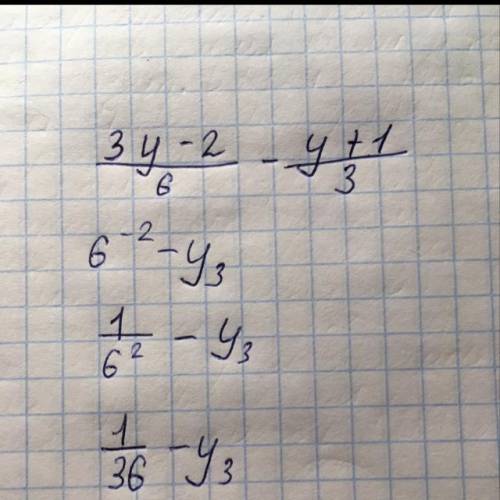 3y - 2 / 6 - y + 1 / 3
6⁻² - y₃
1 / 6² - y₃
1 / 36 - y₃